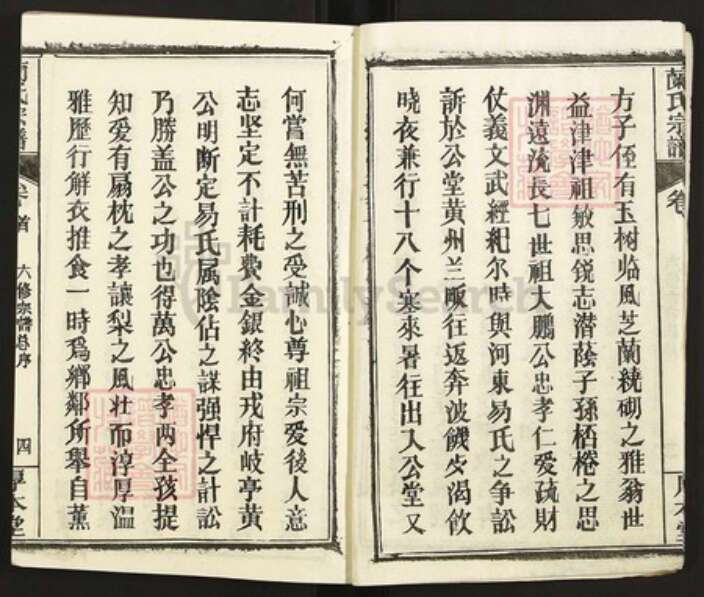 蘭氏宗譜
卷
厚本堂
方子侄有玉树临風芝蘭繞砌之雅翁世
益津津祖敏思锐志潜蔭子孫栖棬之思
渊遠流長七世祖大鹏公忠孝仁爱疏財
仗義文武經紀尔時與河東易氏之争訟
訴於公堂黄州兰畈往返奔波饑歺渴飲
晓夜兼行十八个寒來暑往出入公堂又
何嘗無苦刑之受誠心尊祖宗爱後人意
志坚定不計耗費金銀終由戎府岐亭黄
公明断定易氏属陰佔之謀强悍之計訟
乃勝盖公之功也得萬公忠孝两全孩提
知爱有扇枕之孝讓梨之風壮而淳厚温
雅歷行解衣推食一時爲鄉鄰所舉自薫
蘭氏宗譜
卷首
六修宗譜总序
四
厚本堂
FamilySearch